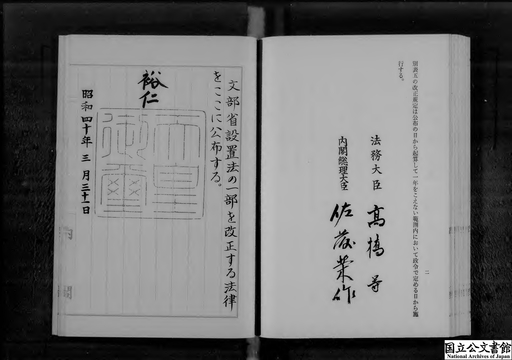 別表五の改正規定は公布の日から起算して一年をこえない範囲内において政令で定める日から施
行する。
二
法務大臣 高橋等
内閣総理大臣 佐藤榮作
文部省設置法の一部を改正する法律
をここに公布する。
裕仁
天皇
御璽
昭和四十年三月三十一日
国立公文書館
National Archives of Japan